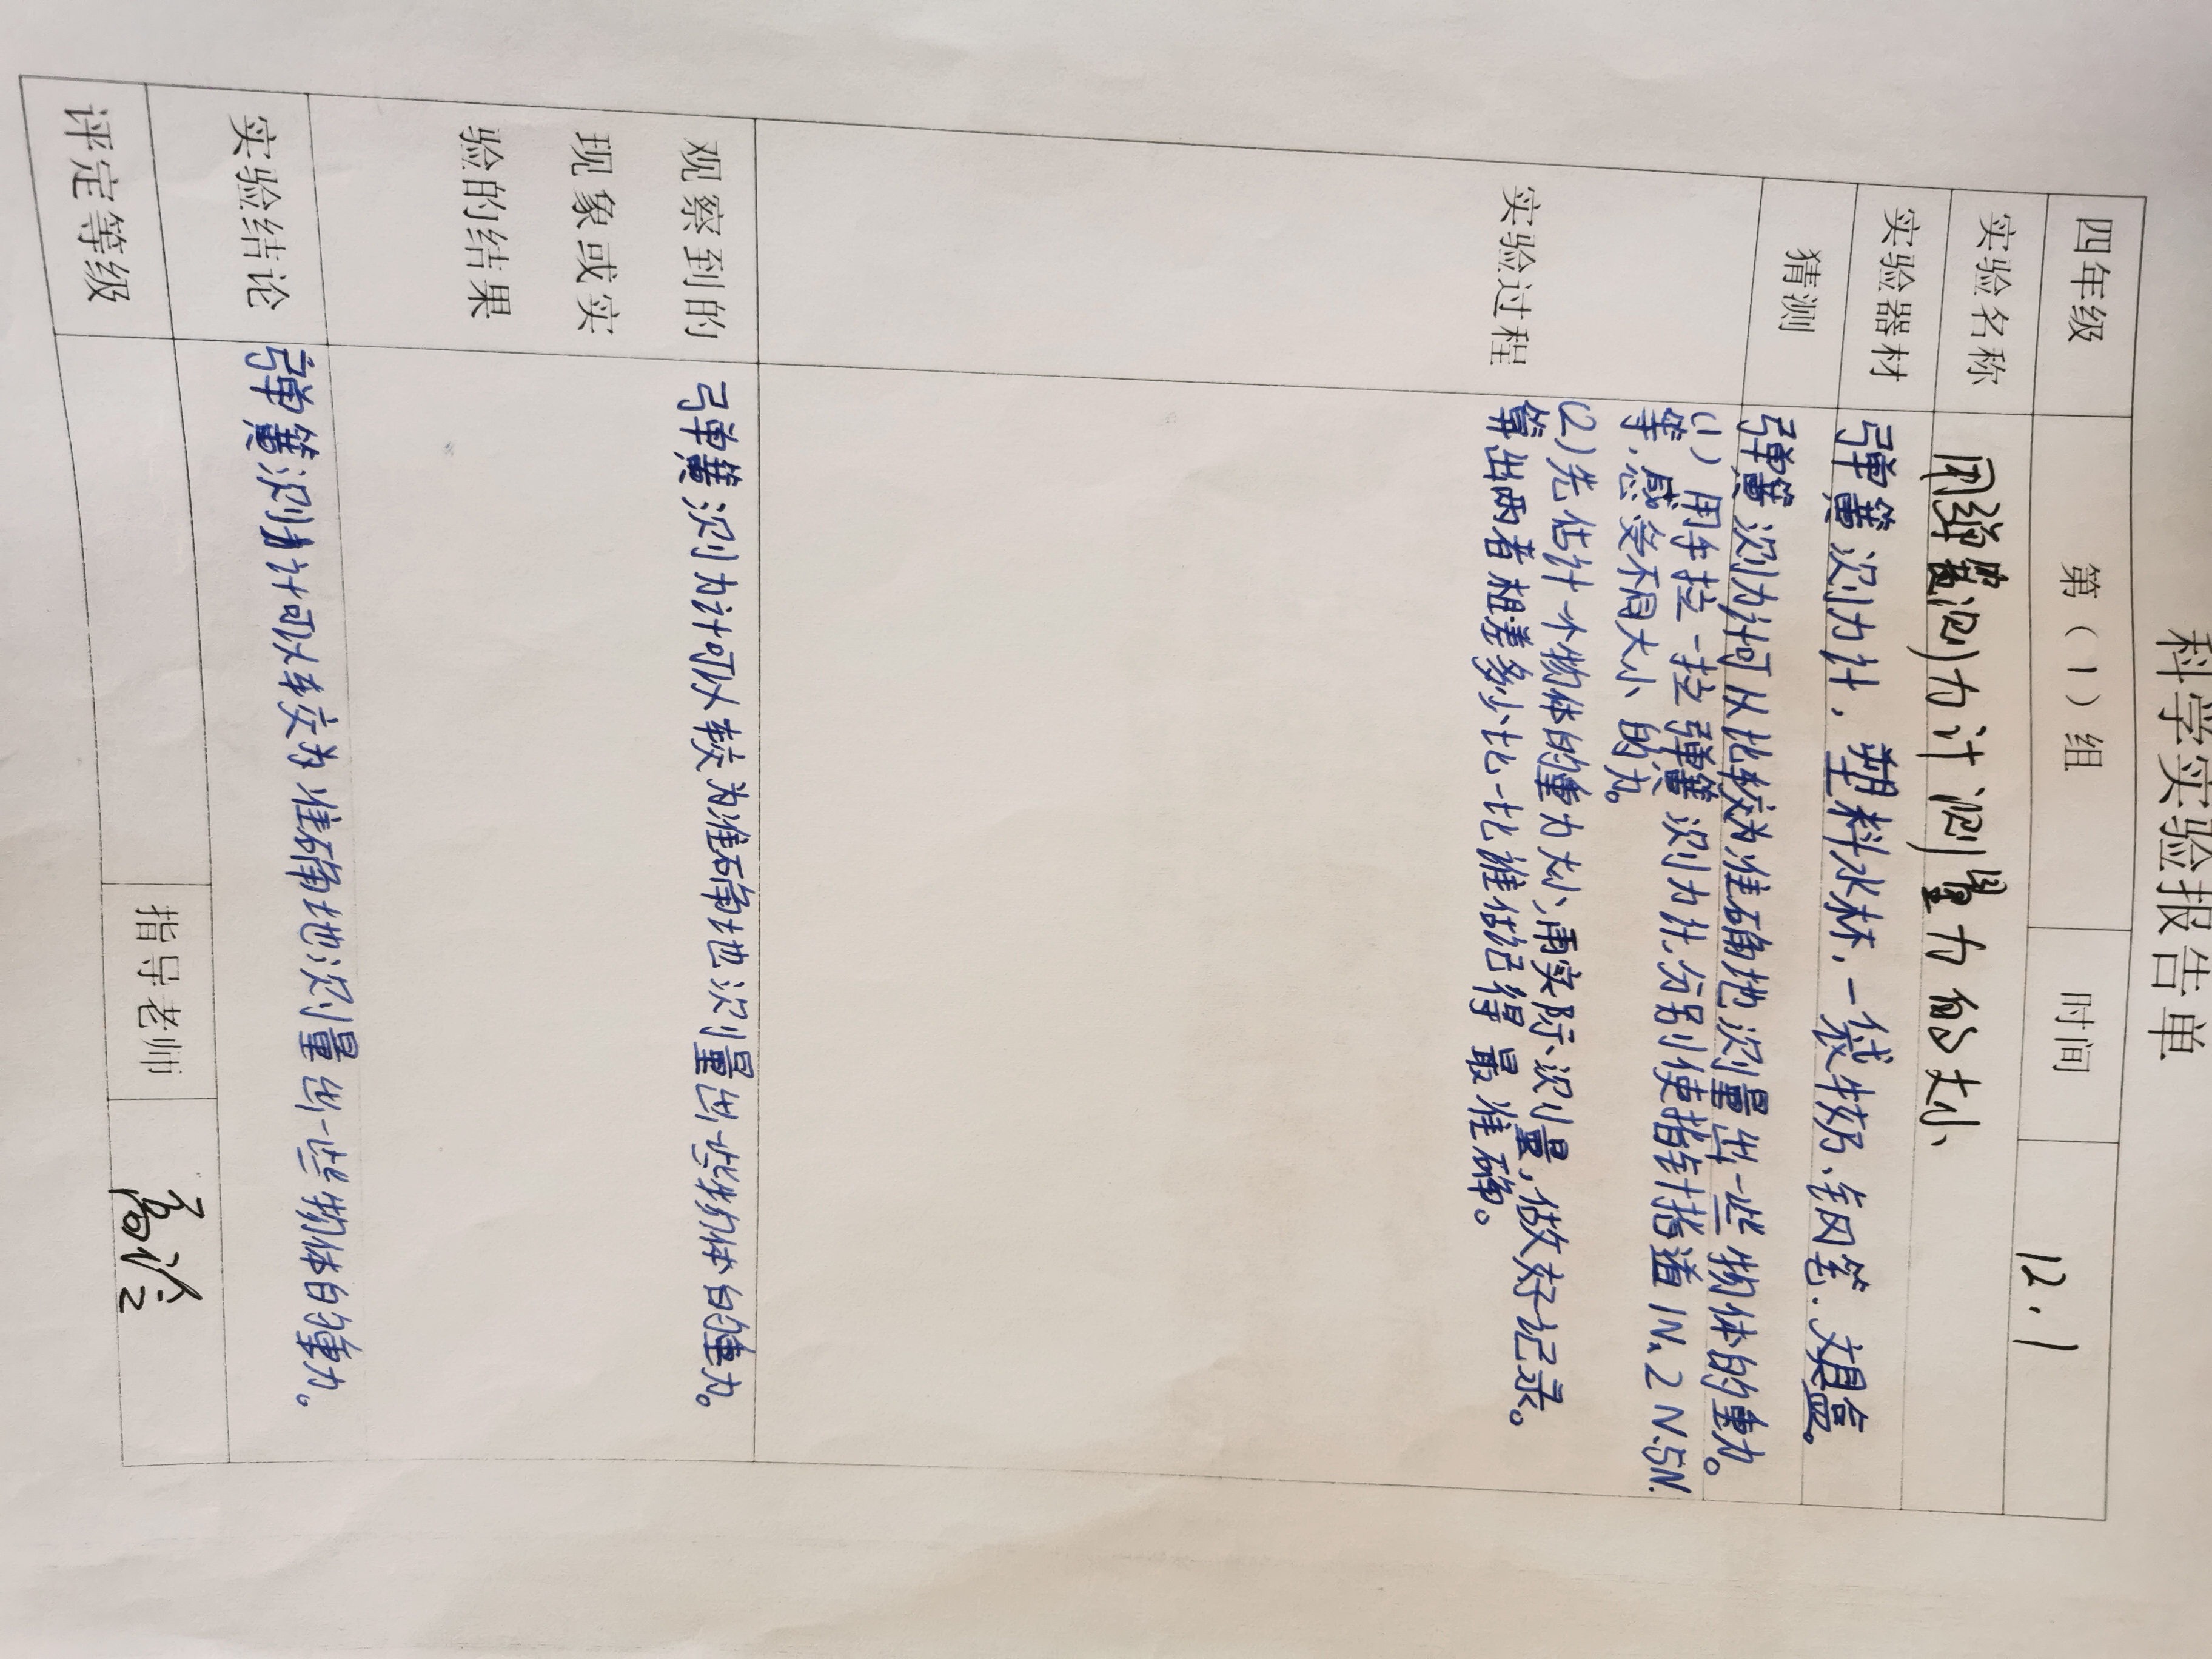 科学实验报告单
四年级 第（1）组 时间 12.1
实验名称 用弹簧测力计测量力的大小
实验器材 弹簧测力计，塑料水杯，一袋牛奶、钢笔.文具盒。
猜测 弹簧测力计可以比较为准确地测量出一些物体的重力。
实验过程
(1) 用手拉一拉弹簧测力计.分别使指针指道1N、2N.5N.
等，感受不同大小的力。
(2)先估计个物体的重力大小、再实际测量，做好记录。
算出两者相差多少比一比谁估记得最准确。
观察到的
现象或实
验的结果
弹簧测力计可以较为准确地测量出一些物体的重力。
实验结论 弹簧测力计可以较为准确地测量出一些物体的重力。
评定等级 指导老师